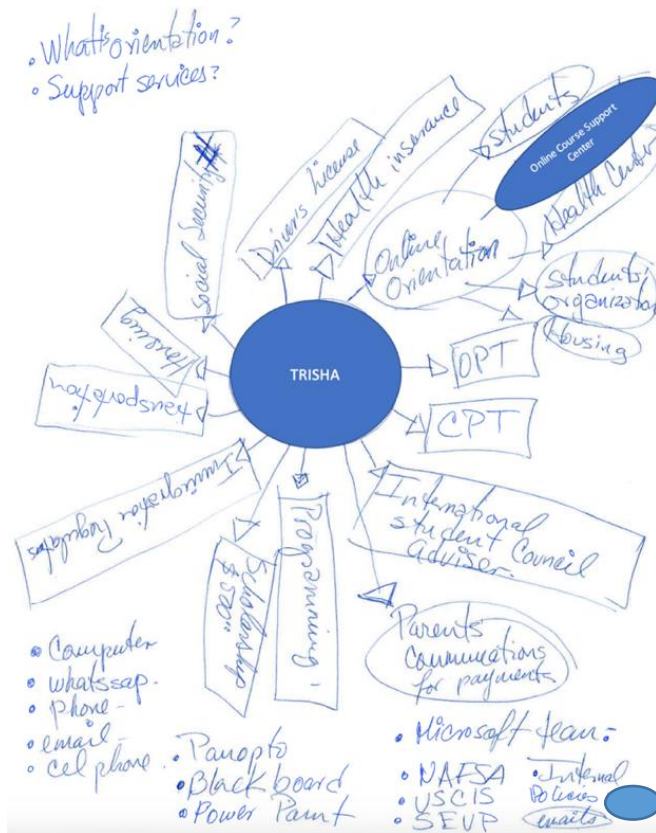 • What is orientation?
• Support services?
Social Security #
Drivers license
Health insurance
Online
Orientation
Students
Online Course Support
Center
Health Center
Students'
organization
Housing
TRISHA
OPT
CPT
International
student Council
adviser.
Parents
Communications
for payments
Programming
Scholarship
Immigration
transportation
Housing
• Computer
• whatssap.
• phone -
• email -
• cel phone.
• Panopto
• Black board
• Power Paint
• Microsoft team.
• NAFSA
• USCIS
• SEVP
• Internal
Policies
emails